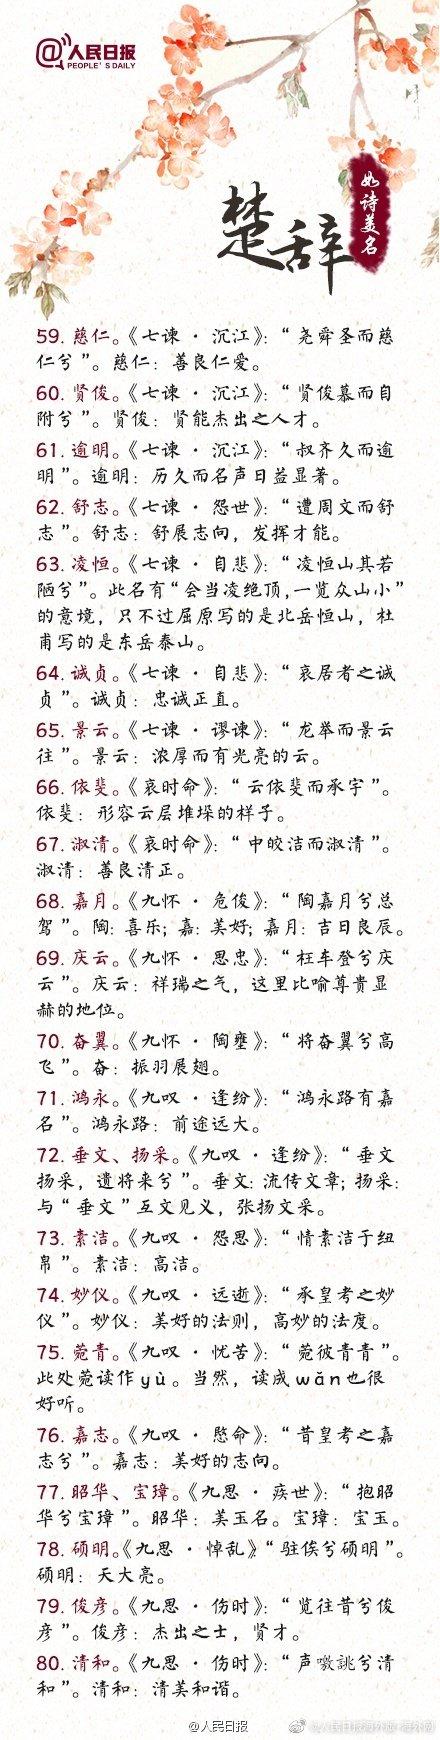 @人民日报
PEOPLE'S DAILY
如诗美名
楚辞
59. 慈仁。《七谏 · 沉江》：“尧舜圣而慈
仁兮”。慈仁：善良仁爱。
60. 贤俊。《七谏 · 沉江》：“贤俊慕而自
附兮”。贤俊：贤能杰出之人才。
61. 逾明。《七谏 · 沉江》：“叔齐久而逾
明”。逾明：历久而名声日益显著。
62. 舒志。《七谏 · 怨世》：“遭周文而舒
志”。舒志：舒展志向，发挥才能。
63. 凌恒。《七谏 · 自悲》：“凌恒山其若
陋兮”。此名有“会当凌绝顶，一览众山小”
的意境，只不过屈原写的是北岳恒山，杜
甫写的是东岳泰山。
64. 诚贞。《七谏 · 自悲》：“哀居者之诚
贞”。诚贞：忠诚正直。
65. 景云。《七谏 · 谬谏》：“龙举而景云
往”。景云：浓厚而有光亮的云。
66. 依斐。《哀时命》：“云依斐而承宇”。
依斐：形容云层堆垛的样子。
67. 淑清。《哀时命》：“中皎洁而淑清”。
淑清：善良清正。
68. 嘉月。《九怀 · 危俊》：“陶嘉月兮总
驾”。陶：喜乐；嘉：美好；嘉月：吉日良辰。
69. 庆云。《九怀 · 思忠》：“枉车登兮庆
云”。庆云：祥瑞之气，这里比喻尊贵显
赫的地位。
70. 奋翼。《九怀 · 陶壅》：“将奋翼兮高
飞”。奋：振羽展翅。
71. 鸿永。《九叹 · 逢纷》：“鸿永路有嘉
名”。鸿永路：前途远大。
72. 垂文、扬采。《九叹 · 逢纷》：“垂文
扬采，遗将来兮”。垂文：流传文章；扬采：
与“垂文”互文见义，张扬文采。
73. 素洁。《九叹 · 怨思》：“情素洁于纽
帛”。素洁：高洁。
74. 妙仪。《九叹 · 远逝》：“承皇考之妙
仪”。妙仪：美好的法则，高妙的法度。
75. 菀青。《九叹 · 忧苦》：“菀彼青青”。
此处菀读作yù。当然，读成wǎn也很
好听。
76. 嘉志。《九叹 · 愍命》：“昔皇考之嘉
志兮”。嘉志：美好的志向。
77. 昭华、宝璋。《九思 · 疾世》：“抱昭
华兮宝璋”。昭华：美玉名。宝璋：宝玉。
78. 硕明。《九思 · 悼乱》“驻俟兮硕明”。
硕明：天大亮。
79. 俊彦。《九思 · 伤时》：“览往昔兮俊
彦”。俊彦：杰出之士，贤才。
80. 清和。《九思 · 伤时》：“声噭誂兮清
和”。清和：清美和谐。
@人民日报
@人民日报海外版-海外网